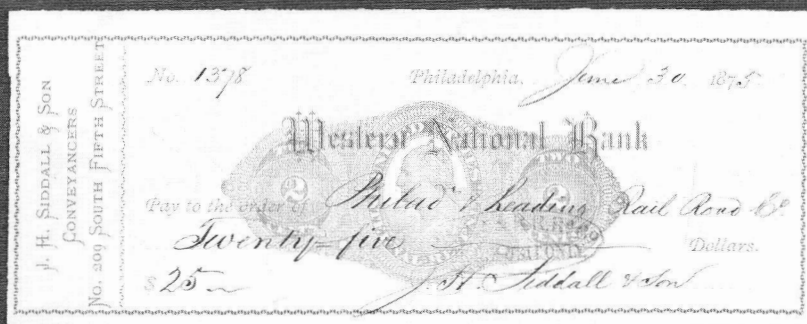 J. H. SIDDALL & SON
CONVEYANCERS
No. 209 SOUTH FIFTH STREET
No. 1378 Philadelphia, June 30 1875
Western National Bank
TWO
2 2
Pay to the order of Philad & Reading Rail Road Co
Twenty-five Dollars.
$25
J. H. Siddall & Son